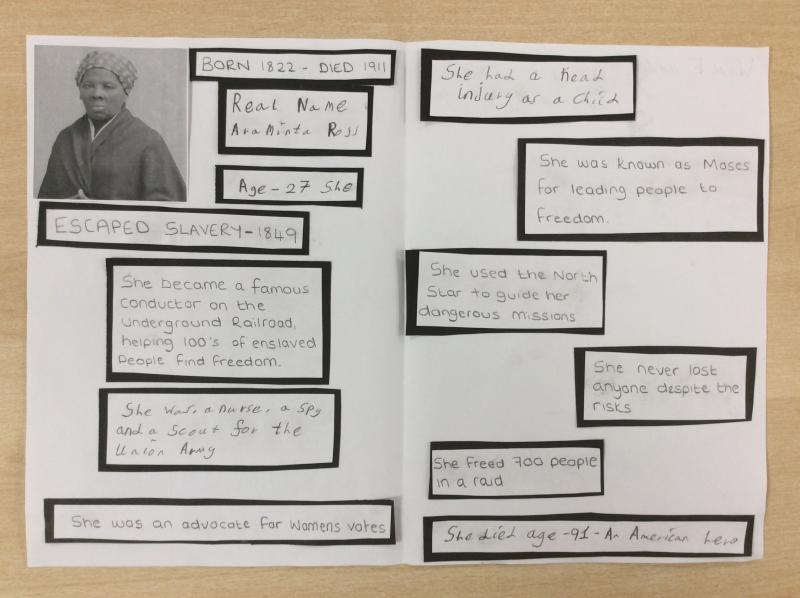 BORN 1822 - DIED 1911
Real Name
AraMinta Ross
Age - 27 She
ESCAPED SLAVERY - 1849
She became a famous
conductor on the
Underground Railroad,
helping 100's of enslaved
People find freedom.
She was, a nurse, a spy
and a scout for the
Union Army
She was an advocate for womens votes
She had a head
injury as a child
She was known as Moses
for leading people to
freedom.
She used the North
Star to guide her
dangerous missions
She never lost
anyone despite the
risks
She freed 700 people
in a raid
She died age - 91 - An American hero